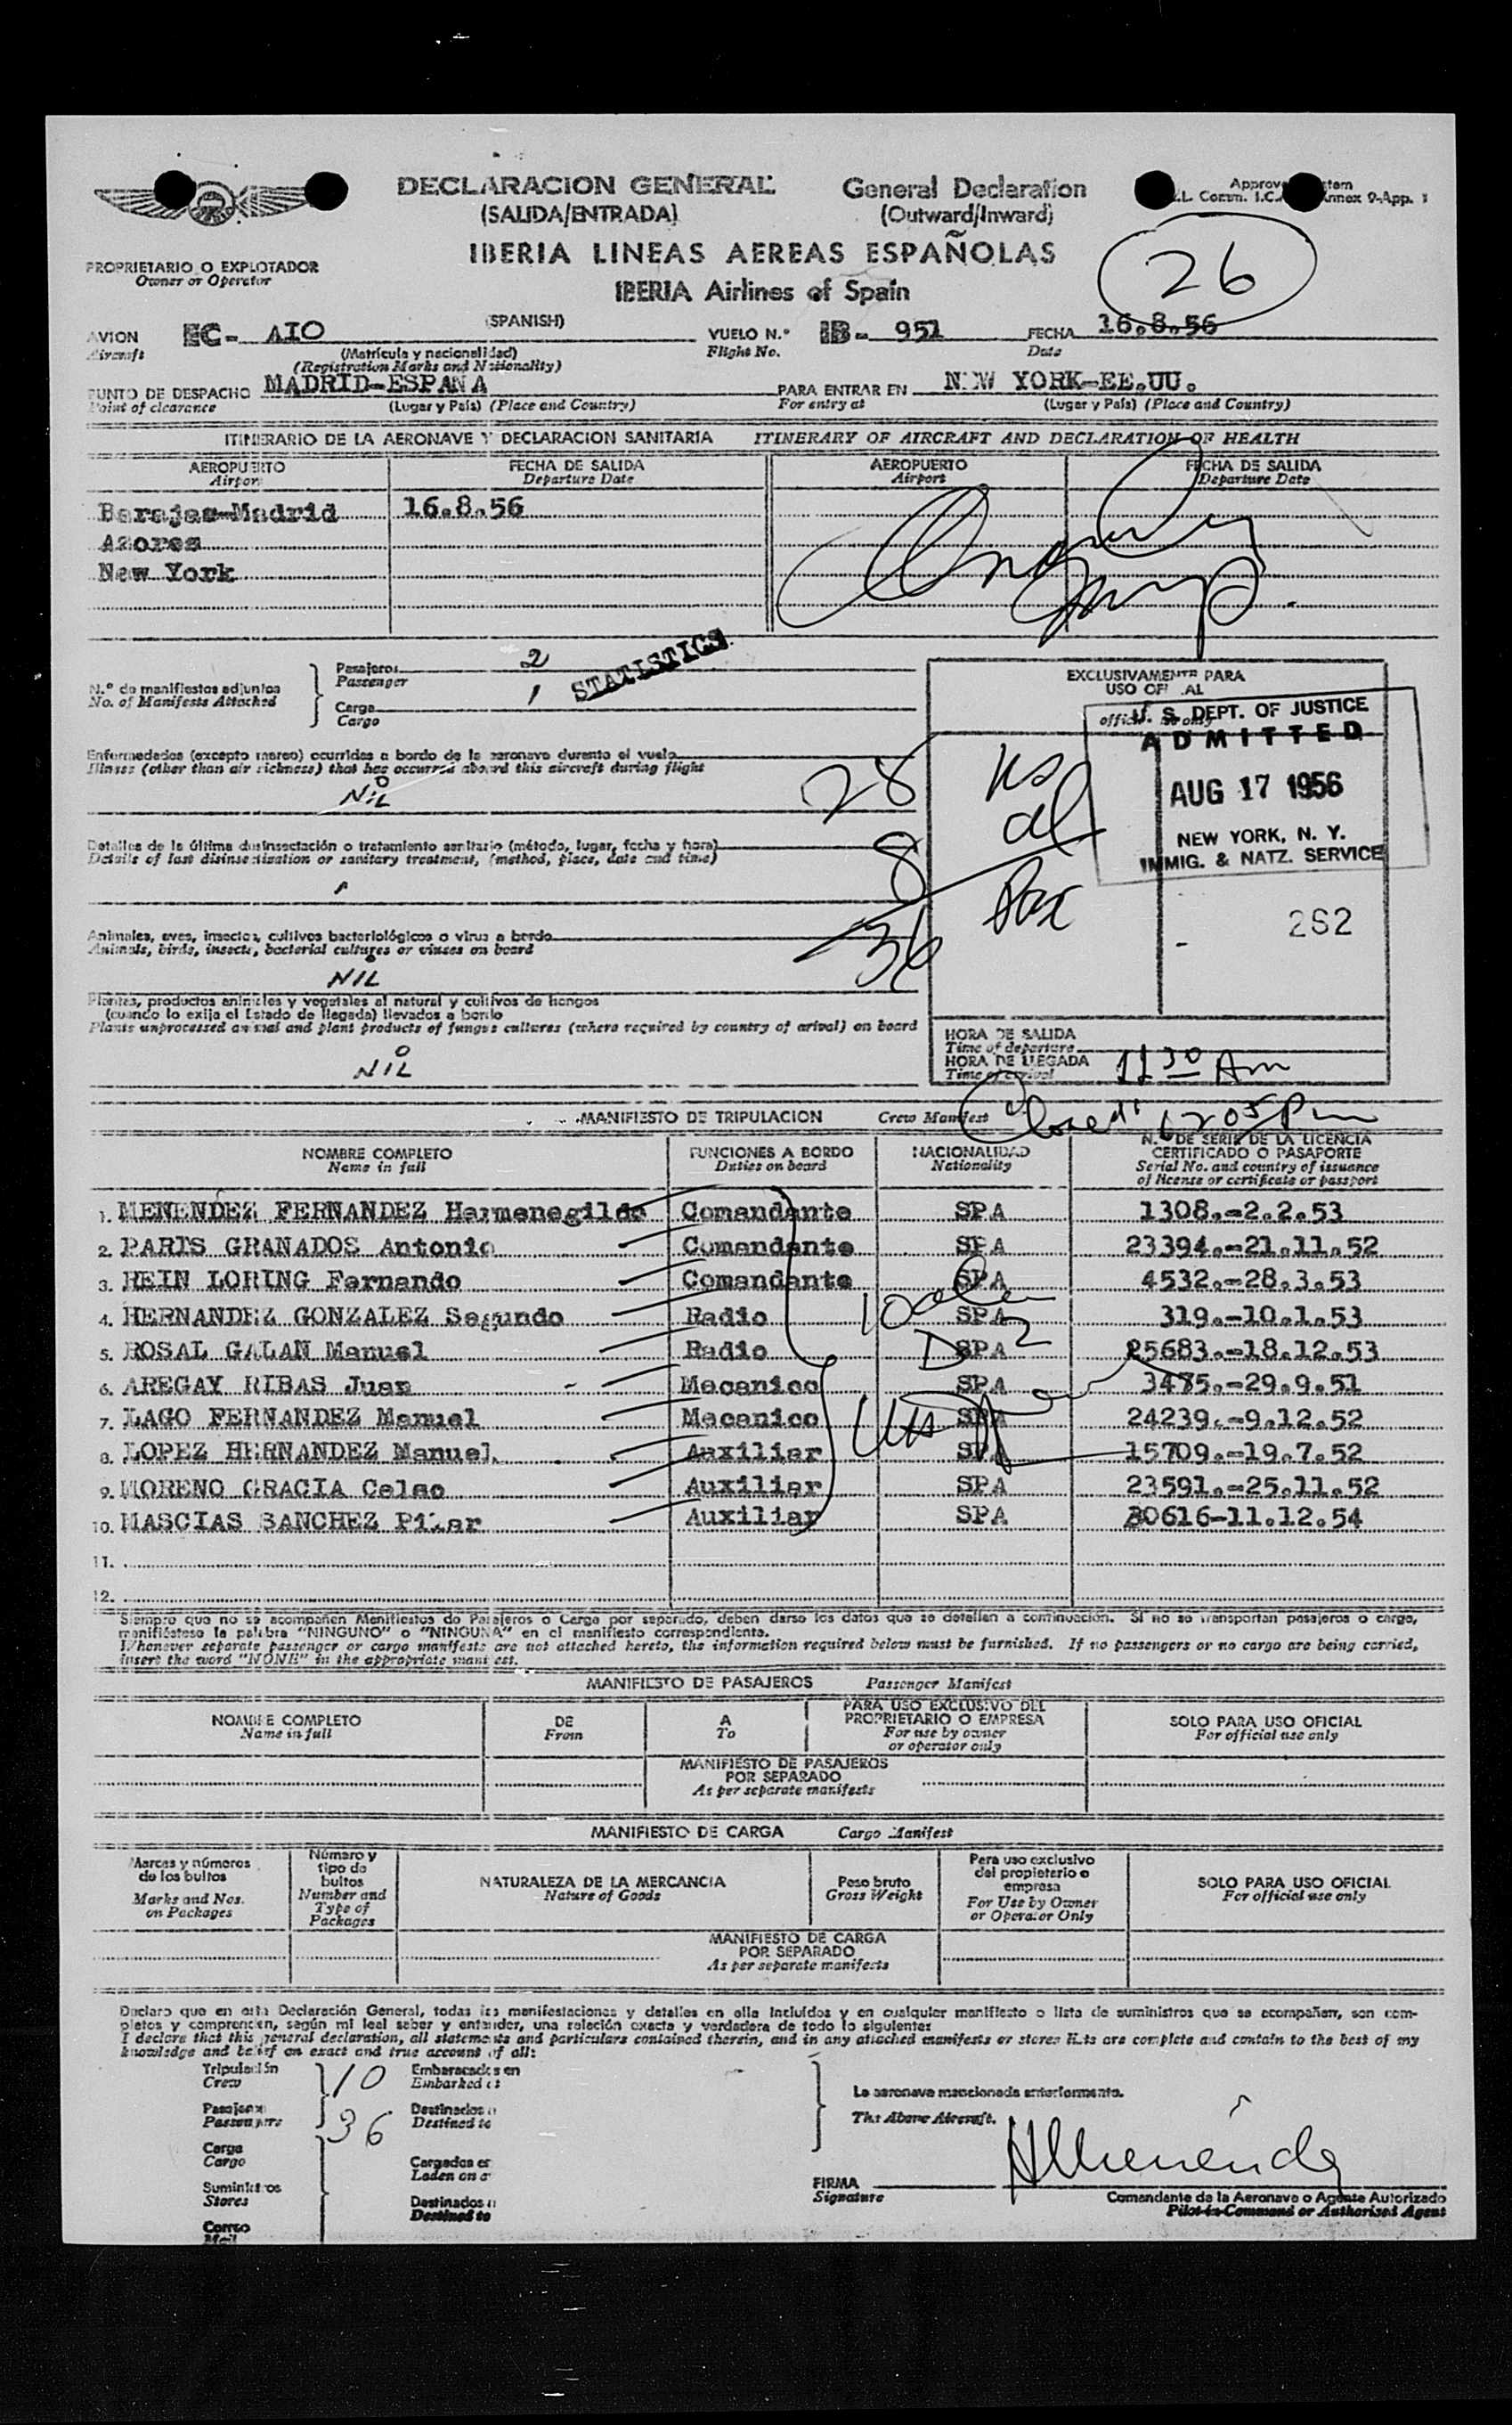 DECLARACION GENERAL General Declaration
(SALIDA/ENTRADA) (Outward/Inward)
IBERIA LINEAS AEREAS ESPAÑOLAS
IBERIA Airlines of Spain
26
PROPRIETARIO O EXPLOTADOR
Owner or Operator
(SPANISH)
AVION EC- AIO VUELO N.º IB- 951 FECHA 16.8.56
Aircraft (Matrícula y nacionalidad) Flight No. Date
(Registration Marks and Nationality)
PUNTO DE DESPACHO MADRID-ESPAÑA PARA ENTRAR EN NEW YORK-EE.UU.
Point of clearance (Lugar y País) (Place and Country) For entry at (Lugar y País) (Place and Country)
ITINERARIO DE LA AERONAVE Y DECLARACION SANITARIA ITINERARY OF AIRCRAFT AND DECLARATION OF HEALTH
AEROPUERTO FECHA DE SALIDA AEROPUERTO FECHA DE SALIDA
Airport Departure Date Airport Departure Date
Barajas-Madrid 16.8.56
Azores
New York
N.º de manifiestos adjuntos
No. of Manifests Attached
Pasajeros 2
Passenger
STATISTICS
Carga 1
Cargo
EXCLUSIVAMENTE PARA
USO OFICIAL
U. S. DEPT. OF JUSTICE
ADMITTED
AUG 17 1956
NEW YORK, N. Y.
IMMIG. & NATZ. SERVICE
282
Enfermedades (excepto mareo) ocurridas a bordo de la aeronave durante el vuelo
Illness (other than air sickness) that has occurred aboard this aircraft during flight
NIL
28 US
8 al
36 Pax
Detalles de la última desinsectación o tratamiento sanitario (método, lugar, fecha y hora)
Details of last disinsectization or sanitary treatment, (method, place, date and time)
Animales, aves, insectos, cultivos bacteriológicos o virus a bordo
Animals, birds, insects, bacterial cultures or viruses on board
NIL
Plantas, productos animales y vegetales al natural y cultivos de hongos
(cuando lo exija el Estado de llegada) llevados a bordo
Plants unprocessed animal and plant products of fungus cultures (where required by country of arival) on board
NIL
HORA DE SALIDA
Time of departure
HORA DE LLEGADA 11 30 Am
Time of arrival
Closed 1205 Pm
MANIFIESTO DE TRIPULACION Crew Manifest
NOMBRE COMPLETO FUNCIONES A BORDO NACIONALIDAD N.º DE SERIE DE LA LICENCIA
Name in full Duties on board Nationality CERTIFICADO O PASAPORTE
Serial No. and country of issuance
of license or certificate or passport
1. MENENDEZ FERNANDEZ Hermenegildo Comandante SPA 1308.-2.2.53
2. PARIS GRANADOS Antonio Comandante SPA 23394.-21.11.52
3. HEIN LORING Fernando Comandante SPA 4532.-28.3.53
4. HERNANDEZ GONZALEZ Segundo Radio SPA 319.-10.1.53
5. ROSAL GALAN Manuel Radio SPA 25683.-18.12.53
6. AREGAY RIBAS Juan Mecanico SPA 3475.-29.9.51
7. LAGO FERNANDEZ Manuel Mecanico SPA 24239.-9.12.52
8. LOPEZ HERNANDEZ Manuel Auxiliar SPA 15709.-19.7.52
9. MORENO GRACIA Celso Auxiliar SPA 23591.-25.11.52
10. MASCIAS SANCHEZ Pilar Auxiliar SPA 30616-11.12.54
11.
12.
Siempre que no se acompañen Manifiestos de Pasajeros o Carga por separado, deben darse los datos que se detallan a continuación. Si no se transportan pasajeros o carga,
manifiéstese la palabra "NINGUNO" o "NINGUNA" en el manifiesto correspondiente.
Whenever separate passenger or cargo manifests are not attached hereto, the information required below must be furnished. If no passengers or no cargo are being carried,
insert the word "NONE" in the appropriate manifest.
MANIFIESTO DE PASAJEROS Passenger Manifest
NOMBRE COMPLETO DE A PARA USO EXCLUSIVO DEL PROPRIETARIO O EMPRESA SOLO PARA USO OFICIAL
Name in full From To For use by owner or operator only For official use only
MANIFIESTO DE PASAJEROS
POR SEPARADO
As per separate manifests
MANIFIESTO DE CARGA Cargo Manifest
Marcas y números de los bultos
Marks and Nos. on Packages
Número y tipo de bultos
Number and Type of Packages
NATURALEZA DE LA MERCANCIA
Nature of Goods
Peso bruto
Gross Weight
Para uso exclusivo del propietario o empresa
For Use by Owner or Operator Only
SOLO PARA USO OFICIAL
For official use only
MANIFIESTO DE CARGA
POR SEPARADO
As per separate manifests
Declaro que en esta Declaración General, todas las manifestaciones y detalles en ella incluídos y en cualquier manifiesto o lista de suministros que se acompañan, son com-
pletos y comprenden, según mi leal saber y entender, una relación exacta y verdadera de todo lo siguiente:
I declare that this general declaration, all statements and particulars contained therein, and in any attached manifests or stores lists are complete and contain to the best of my
knowledge and belief an exact and true account of all:
Tripulación 10 Embarcados en
Crew Embarked at
Pasajeros 36 Destinados a
Passengers Destined to
Carga Cargados en
Cargo Laden on at
Suministros Destinados a
Stores Destined to
Correo
Mail
La aeronave mencionada anteriormente.
The Above Aircraft.
FIRMA HMenéndez
Signature
Comandante de la Aeronave o Agente Autorizado
Pilot-in-Command or Authorised Agent